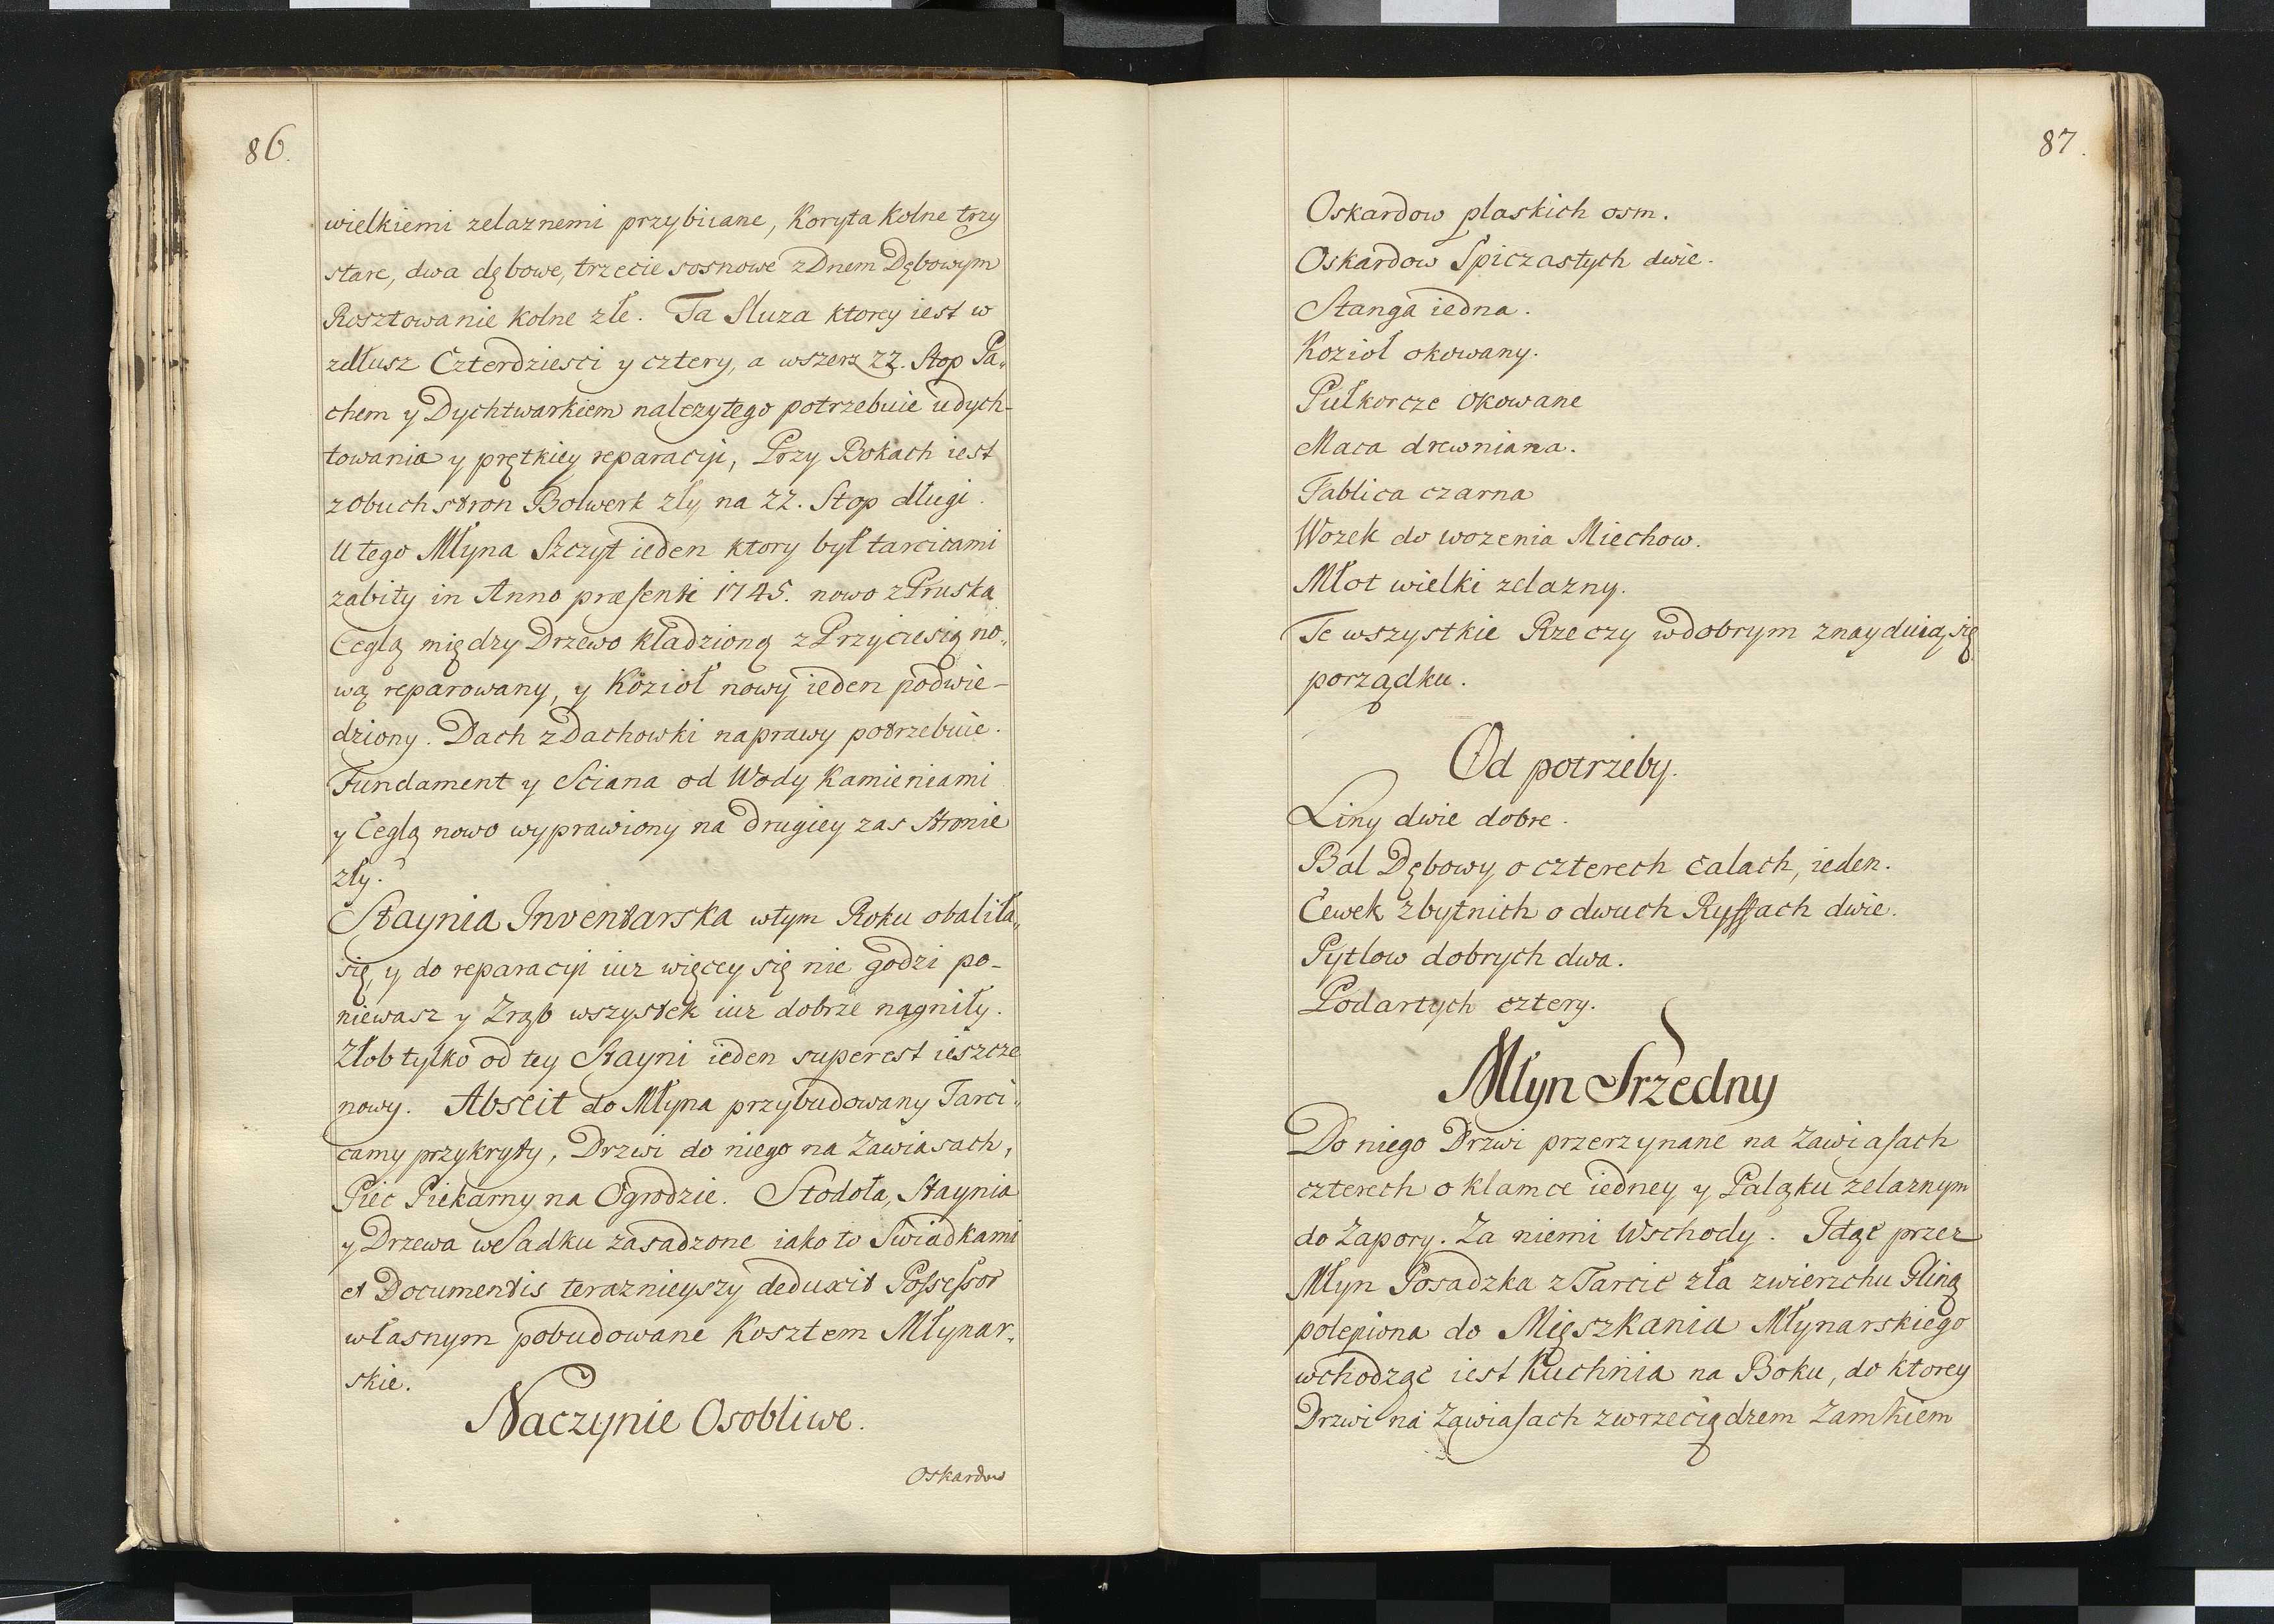 86.
wielkiemi zelaznemi przybiiane, Koryta Kolne trzy
stare, dwa dębowe, trzecie sosnowe z Dnem Dębowym
Rosztowanie Kolne złe. Ta Sluza ktorey iest w
zdłusz Czterdziesci y cztery, a wszerz 22. Stop Pa„
chem y Dychtwarkiem nalezytego potrzebuie udych-
towania y prętkiey reparacyi, Przy Bokach iest
z obuch stron Bolwerk zły na 22. Stop długi.
U tego Młyna Szczyt ieden ktory był tarcicami
zabity in Anno præsenti 1745. nowo z Pruska
Ceglą między Drzewo kładzioną z Przyciesią no„
wą reparowany, y Kozioł nowy ieden podwie-
dziony. Dach z Dachowki naprawy potrzebuie.
Fundament y Sciana od Wody Kamieniami
y Ceglą nowo wyprawiony na drugiey zas Stronie
zły.
Staynia Inventarska w tym Roku obaliła„
się, y do reparacyi iuz więcey się nie godzi po-
niewasz y Zrąb wszystek iuz dobrze nagniły.
Złob tylko od tey Stayni ieden superest ieszcze
nowy. Abseit do Młyna przybudowany Tarci„
camy przykryty, Drzwi do niego na Zawiasach,
Piec Piekarny na Ogrodzie. Stodoła, Staynia
y Drzewa we Sadku zasadzone iako to Swiadkami
et Documentis teraznieyszy deduxit Possessor
własnym pobudowane Kosztem Młynar„
skie.
Naczynie Osobliwe.
Oskardow
87.
Oskardow plaskich osm.
Oskardow Spiczastych dwie.
Stanga iedna.
Kozioł okowany.
Pułkorcze okowane
Maca drewniana.
Tablica czarna
Wozek do wozenia Miechow.
Młot wielki zelazny.
Te wszystkie Rzeczy w dobrym znayduią się
porządku.
Od potrzeby.
Liny dwie dobre.
Bal Dębowy o czterech calach, ieden.
Cewek zbytnich o dwuch Ryffach dwie.
Pytlow dobrych dwa.
Podartych cztery.
Młyn Srzedny
Do niego Drzwi przerzynane na Zawiasach
czterech o klamce iedney y Palązku zelaznym
do Zapory. Za niemi Wschody. Idąc przez
Młyn Posadzka z Tarcic zła zwierzchu Gliną
polepiona do Mięszkania Młynarskiego
wchodząc iest Kuchnia na Boku, do ktorey
Drzwi na Zawiasach z wrzeciądzem Zamkiem